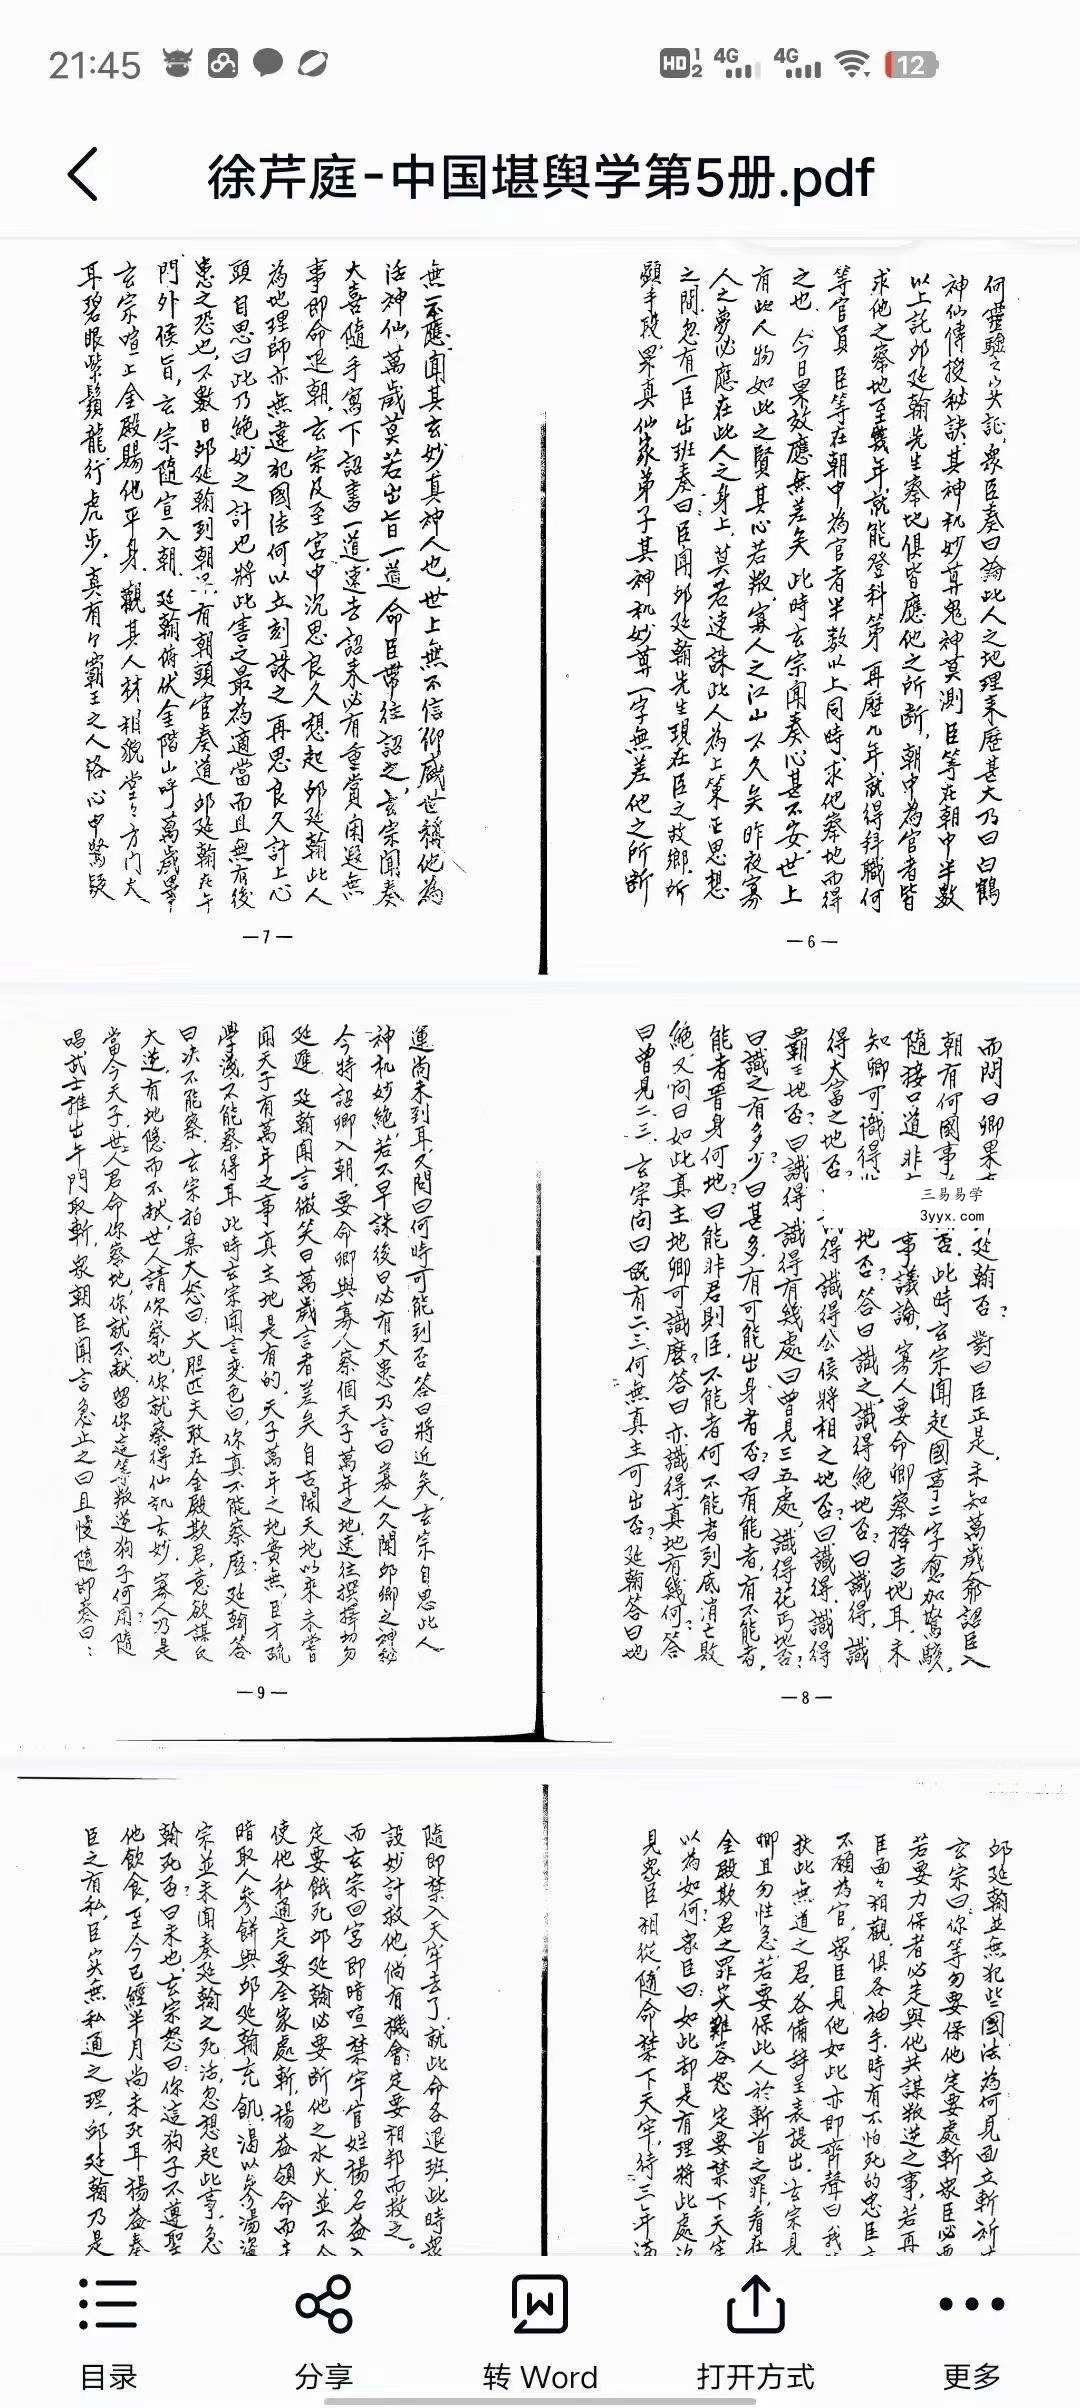 21:45
HD 1 2 4G 4G 12
徐芹庭-中国堪舆学第5册.pdf
何靈驗之实証，衆臣奏曰論此人之地理来歷甚大乃曰白鶴
神仙傳授秘訣其神机妙算鬼神莫測臣等在朝中半数
以上託邱延翰先生察地俱皆應他之所断，朝中為官者皆
求他之察地至幾年就能登科第再歷九年就得拜職何
等官員臣等在朝中為官者半数以上同時求他察地而得
之也今日果效應無差矣此時玄宗聞奏心甚不安世上
有此人物如此之賢其心若叛寡人之江山不久矣昨夜寡
人之夢必應在此人之身上，莫若速誅此人為上策正思想
之間忽有一臣出班奏曰臣聞邱延翰先生現在臣之故鄉所
顯手段果真仙家弟子其神机妙算一字無差他之所断
—6—
無不應聞其玄妙真神人也，世上無不信仰盛世稱他為
活神仙萬歲莫若出旨一道命臣帶往詔之，玄宗聞奏
大喜隨手寫下詔書一道速去詔来必有重賞閑遐無
事即命退朝玄宗及至宮中沉思良久想起邱延翰此人
為地理師亦無違犯國法何以立刻誅之再思良久計上心
頭自思曰此乃絕妙之計也將此害之最為適當而且無有後
患之恐也，不數日邱延翰到朝有朝頭官奏道邱延翰在午
門外候旨，玄宗隨宣入朝延翰俯伏金階山呼萬歲畢
玄宗喧上金殿賜他平身觀其人材相貌堂々方門大
耳碧眼紫鬚龍行虎步真有个霸王之人洛心中驚疑
—7—
而問曰卿果 延翰否？對曰臣正是，未知萬歲爺詔臣入
朝有何國事 否此時玄宗聞起國事二字愈加驚駭，
隨接口道非 事議論，寡人要命卿察擇吉地耳未
知卿可識得 地否？答曰識之識得絕地否？曰識得，識
得大富之地否 得識得公侯將相之地否？曰識得識得
霸王地否？曰識得識得有幾處曰曾見三五處，識得花丐地否？
曰識之有多少曰甚多有可能出身者否曰有能者，有不能者，
能者晉身何地？曰能非君則臣，不能者何不能者到底消亡敗
絕又问曰如此真主地卿可識麼？答曰亦識得真地有幾何？答
曰曾見二三玄宗问曰既有二三何無真主可出否？延翰答曰地
三易易学
3yyx.com
—8—
運尚未到耳又問曰何時可能到否答曰將近矣玄宗自思此人
神机妙絕若不早誅後日必有大患乃言曰寡人久聞邱卿之神秘
今特詔卿入朝要命卿與寡人察個天子萬年之地速往撰擇切勿
延遲延翰聞言微笑曰萬歲言者差矣自古開天地以來未嘗
聞天子有萬年之事真主地是有的，天子萬年之地實無，臣才疏
學淺不能察得耳此時玄宗聞言变色曰你真不能察麼？延翰答
曰决不能察玄宗拍案大怒曰大胆匹夫敢在金殿欺君意欲謀反
大逆，有地隱而不献世人請你察地，你就察得仙机玄妙寡人乃是
當今天子世人君命你察地，你就不献留你这等叛逆狗子何用？隨
唱武士推出午門取斬，眾朝臣聞言急止之曰且慢隨即奏曰：
—9—
邱延翰並無犯些國法為何見面立斬
玄宗曰你等勿要保他定要處斬眾臣必要
若要力保者必定與他共謀叛逆之事若再
臣面々相觀俱各袖手時有不怕死的忠臣
不願為官眾臣見他如此亦即齊聲曰我
扶此無道之君各備辞呈表提出玄宗見
卿且勿性急若要保此人於斬首之罪看在
金殿欺君之罪实難容恕定要禁下天牢
以為如何？家臣曰如此却是有理將此處
見眾臣相從隨命禁下天牢，待三年滿
隨即禁入天牢去了就此命各退班此時眾
設妙計救他，倘有機會定要相邦而救之。
而玄宗回宮即暗喧禁牢官姓楊名益入
定要餓死邱延翰必要断他之水火並不
使他私通定要全家處斬，楊益領命而
暗取人參餅與邱延翰充飢渴以參湯
宗並未聞奏延翰之死活忽想起此事急
翰死否曰未也玄宗怒曰你這狗子不遵聖
他飲食，至今已經半月尚未死耳楊益奏
臣之有私臣实無私通之理邱延翰乃是
目录
分享
转 Word
打开方式
更多